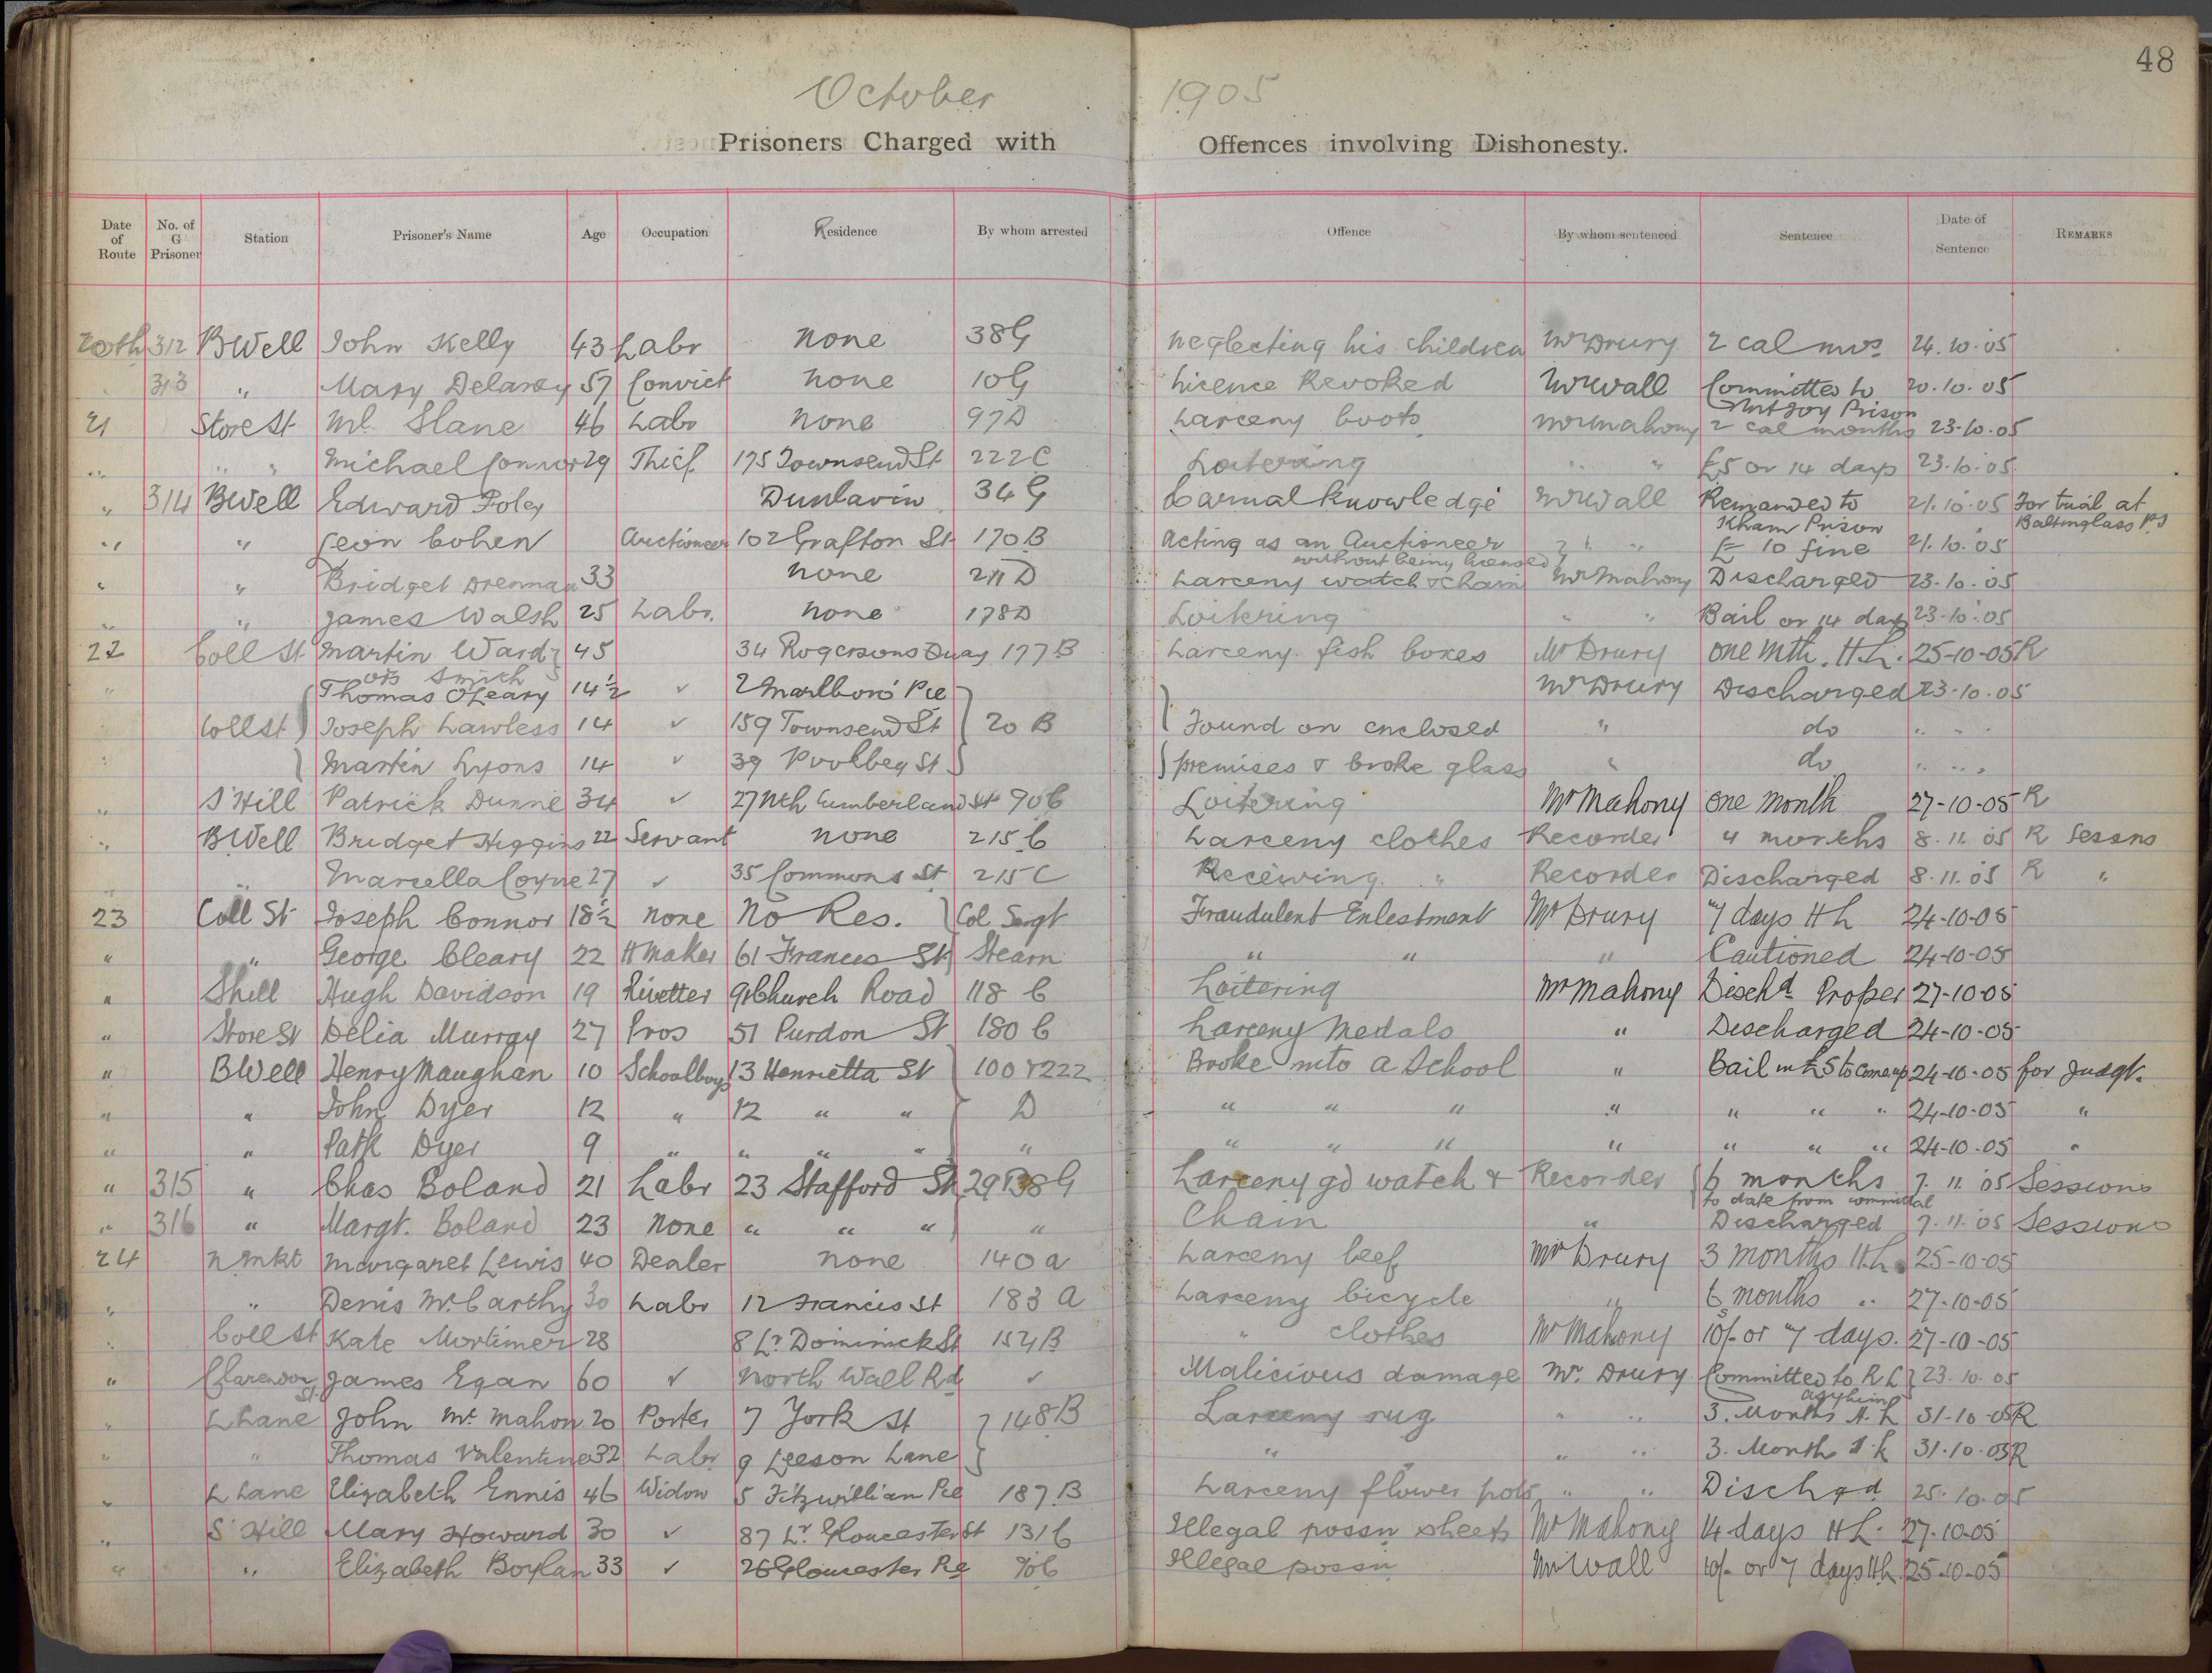 48
October 1905
Prisoners Charged with Offences involving Dishonesty.
Date of Route No. of G Prisoner Station Prisoner's Name Age Occupation Residence By whom arrested Offence By whom sentenced Sentence Date of Sentence REMARKS
20th 312 BWell John Kelly 43 Labr none 38G neglecting his children Mr Drury 2 cal mos 24.10.05
313 " Mary Delaney 57 Convict none 10G Licence Revoked Mr Wall Committed to 20.10.05
Mntjoy Prison
21 Store St Ml Slane 46 Labr none 97D Larceny boots Mr Mahony 2 cal months 23.10.05
" " " Michael Connor 29 Thief 175 Townsend St 222C Loitering " " £5 or 14 days 23.10.05
" 314 BWell Edward Foley Dunlavin 34G Carnal knowledge Mr Wall Remanded to 21.10.05 For trial at
Kham Prison Baltinglass P.S
" " Leon Cohen Auctioneer 102 Grafton St 170B Acting as an Auctioneer " " £10 fine 21.10.05
without being licensed
" " Bridget Drennan 33 none 211D Larceny watch & chain Mr Mahony Discharged 23.10.05
" " James Walsh 25 Labr. none 178D Loitering " " Bail or 14 days 23.10.05
22 Coll St Martin Ward 45 34 Rogersons Quay 177B Larceny fish boxes Mr Drury one mth. H.L. 25-10-05 R
ors Smith
" Thomas O'Leary 14½ ✓ 2 Marlboro' Plc Mr Drury Discharged 23.10.05
Coll St Joseph Lawless 14 ✓ 159 Townsend St 20 B Found on enclosed " do " " "
" Martin Lyons 14 ✓ 39 Poolbeg St premises & broke glass " do " " "
" S'Hill Patrick Dunne 34 ✓ 27 Nth Cumberland St 90C Loitering Mr Mahony one month 27-10-05 R
" BWell Bridget Higgins 22 Servant none 215C Larceny clothes Recorder 4 months 8.11.05 R Sessns
" " Marcella Coyne 27 ✓ 35 Commons St 215C Receiving " Recorder Discharged 8.11.05 R "
23 Coll St Joseph Connor 18½ none No Res. Col Sergt Fraudulent Enlestment Mr Drury 7 days H L 24-10-05
" " George Cleary 22 H maker 61 Francis St Stearn " " " Cautioned 24-10-05
" Shill Hugh Davidson 19 Rivetter 91 Church Road 118 C Loitering Mr Mahony Dischd Proper 27-10-05
" Store St Delia Murray 27 Pros 51 Purdon St 180 C Larceny Medals " Discharged 24-10-05
" BWell Henry Maughan 10 Schoolboys 13 Henrietta St 100 & 222 Broke into a School " Bail in £5 to come up 24-10-05 for Judgt.
" " John Dyer 12 " 12 " " D " " " " " " " 24-10-05 "
" " Patk Dyer 9 " " " " " " " " " " " " 24-10-05 "
" 315 " Chas Boland 21 Labr 23 Stafford St 29 & 38G Larceny gd watch & Recorder 6 months 7.11.05 Sessions
to date from committal
" 316 " Margt. Boland 23 none " " " " Chain " Discharged 7.11.05 Sessions
24 N Mkt Margaret Lewis 40 Dealer none 140 A Larceny beef Mr Drury 3 months H.L. 25-10-05
" " Denis McCarthy 30 Labr 12 Francis St 183 A Larceny bicycle " 6 months " 27-10-05
" Coll St Kate Mortimer 28 8 Lr Dominick St 154B " clothes Mr Mahony 10/- or 7 days. 27-10-05
" Clarendon St James Egan 60 ✓ North Wall Rd ✓ Malicious damage Mr. Drury Committed to R L 23.10.05
asylum
" L Lane John Mc Mahon 20 Porter 7 York St 148B Larceny rug " " 3. Months H. L 31-10-05 R
" " Thomas Valentine 32 Labr 9 Leeson Lane " " " 3. Month H. L 31.10-05 R
" L Lane Elizabeth Ennis 46 Widow 5 Fitzwillian Plc 187 B Larceny flower pots " " Dischgd 25.10.05
" S'Hill Mary Howard 30 ✓ 87 Lr. Gloucester St 131C Illegal possn sheets Mr Mahony 14 days H L. 27-10-05
" " Elizabeth Boylan 33 ✓ 26 Gloucester Plc 90C Illegal possn Mr Wall 10/- or 7 days H.L. 25-10-05